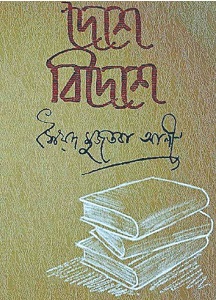 দেশে
বিদেশে
সৈয়দ মুজতবা আলী